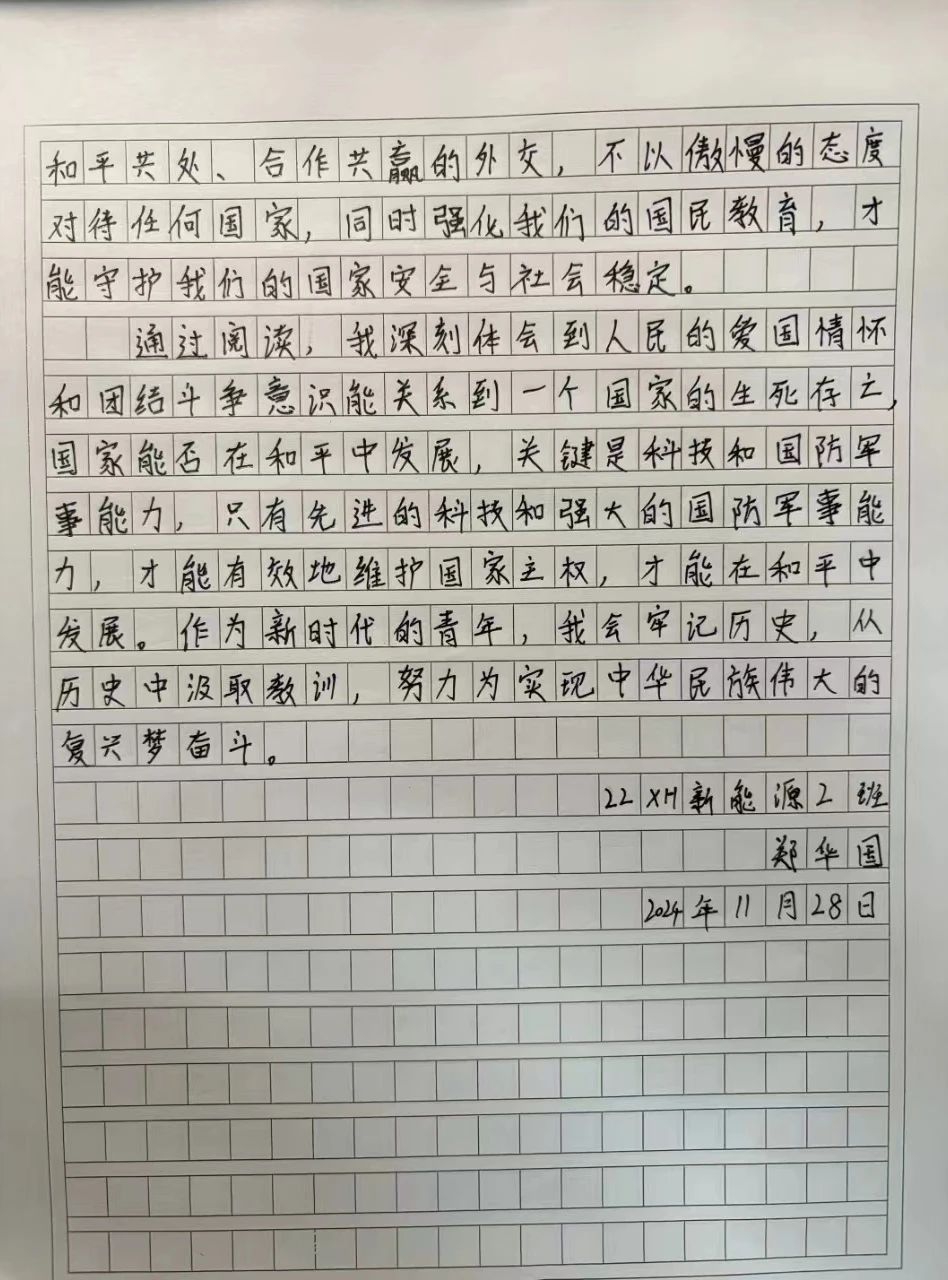 和平共处、合作共赢的外交，不以傲慢的态度
对待任何国家，同时强化我们的国民教育，才
能守护我们的国家安全与社会稳定。
通过阅读，我深刻体会到人民的爱国情怀
和团结斗争意识能关系到一个国家的生死存亡，
国家能否在和平中发展，关键是科技和国防军
事能力，只有先进的科技和强大的国防军事能
力，才能有效地维护国家主权，才能在和平中
发展。作为新时代的青年，我会牢记历史，从
历史中汲取教训，努力为实现中华民族伟大的
复兴梦奋斗。
22XH新能源2班
郑华国
2024年11月28日